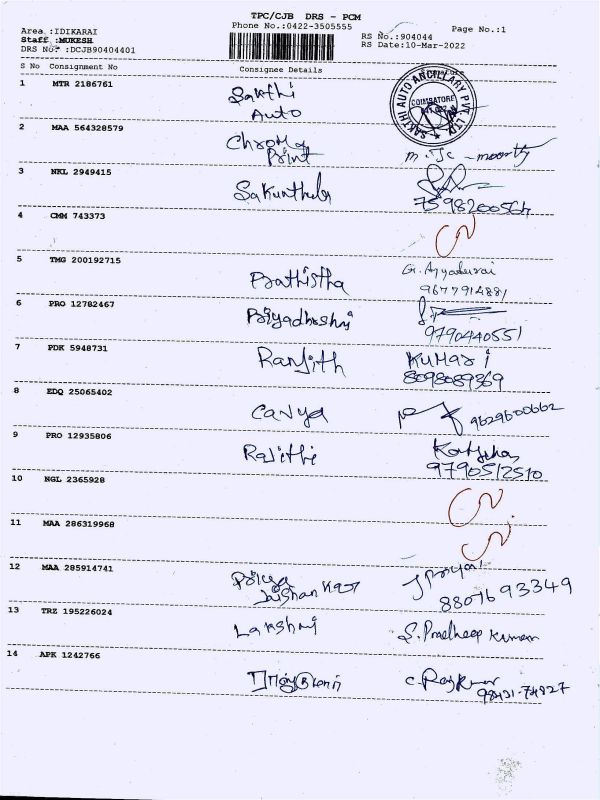 TPC/CJB DRS - PCM
Area :IDIKARAI Phone No.:0422-3505555 Page No.:1
Staff :MUKESH RS No.:904044
DRS No* :DCJB90404401 RS Date:10-Mar-2022
S No Consignment No Consignee Details
1 MTR 2186761 Sakthi
Auto
SAKTHI AUTO ANCILLARY PVT. LTD.
COIMBATORE
2 MAA 564328579 Chroma
Print
3 NKL 2949415 Sakunthala
7598200564
4 CMM 743373
5 TMG 200192715 Prathistha G. Ayyadurai
9677914881
6 PRO 12782467 Priyadharshni
9790440551
7 PDK 5948731 Ranjith Kumar i
8098089369
8 EDQ 25065402 Canya 9629600662
9 PRO 12935806 Rajithi
9790512510
10 NGL 2365928
11 MAA 286319968
12 MAA 285914741 Priya
8807693349
13 TRZ 195226024 Lakshmi S. Pradheep Kumar
14 APK 1242766 C. Rajkumar
98431-74827